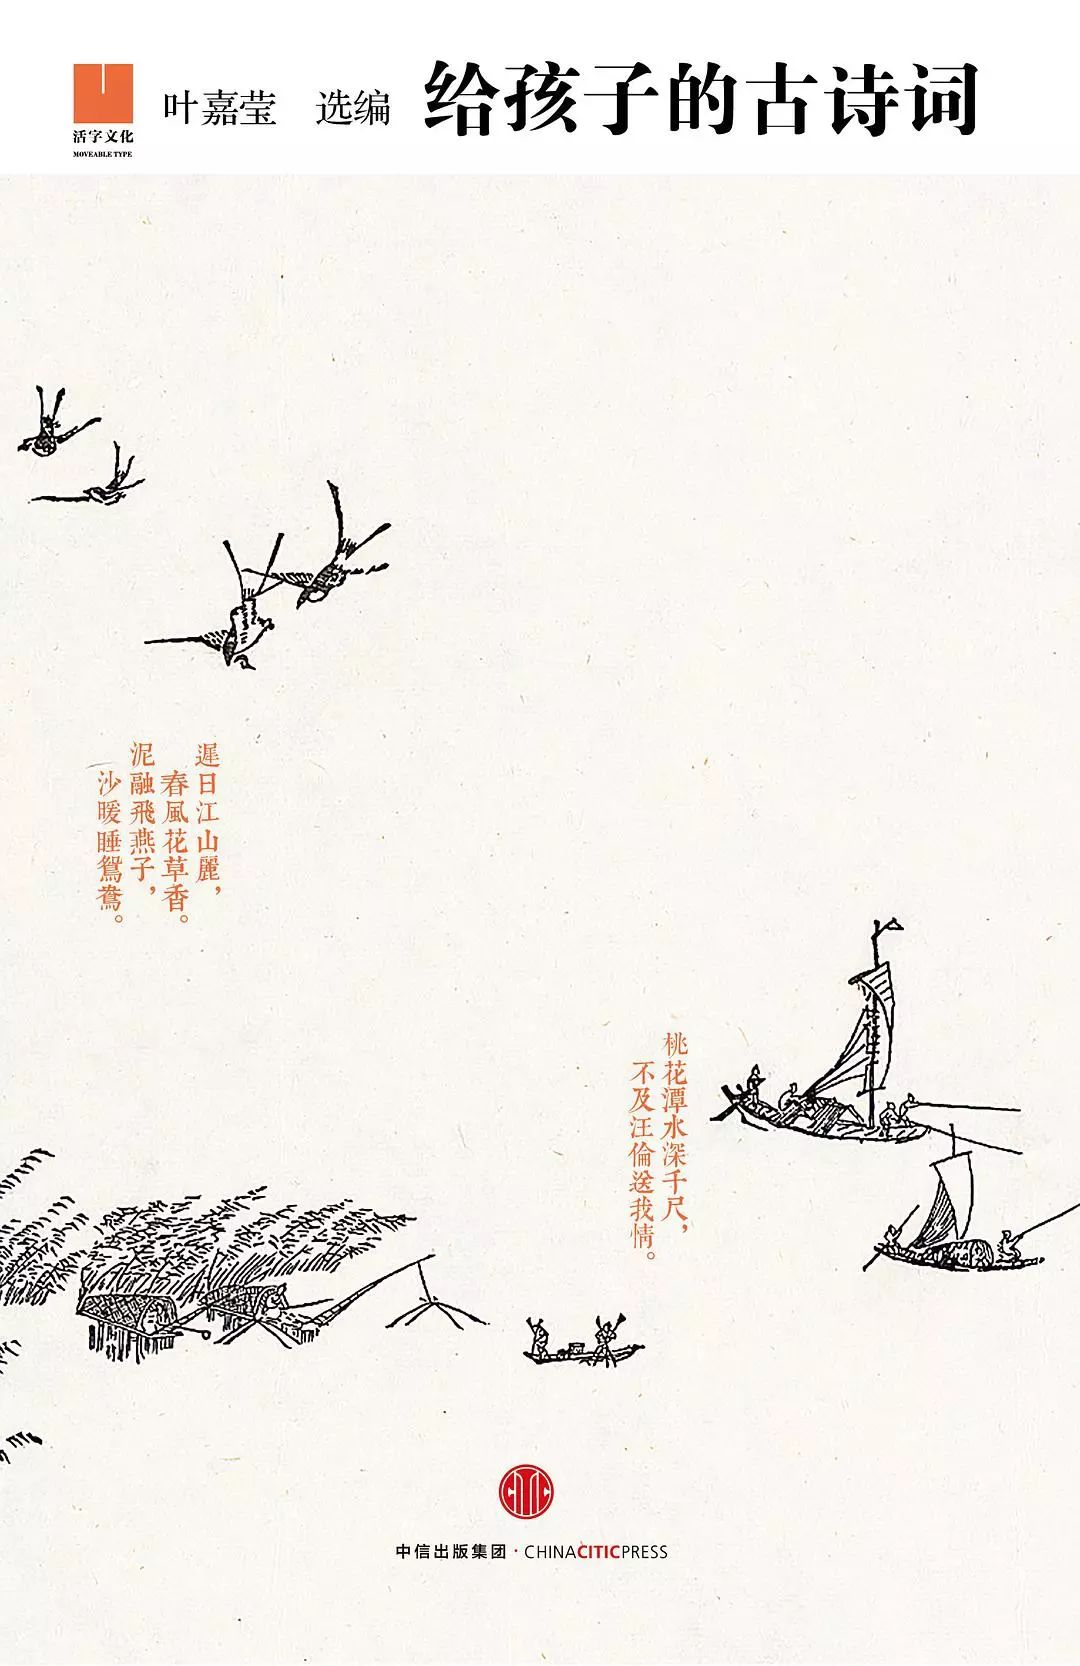 活字文化
MOVEABLE TYPE
叶嘉莹 选编
给孩子的古诗词
遲日江山麗，
春風花草香。
泥融飛燕子，
沙暖睡鴛鴦。
桃花潭水深千尺，
不及汪倫送我情。
中信出版集团·CHINACITICPRESS